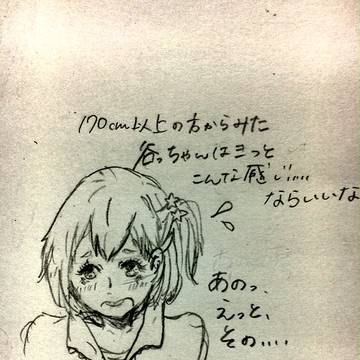 170cm以上の方からみた
谷っちゃんはきっと
こんな感じ....
ならいいな
あのっ、
えっと、
その....